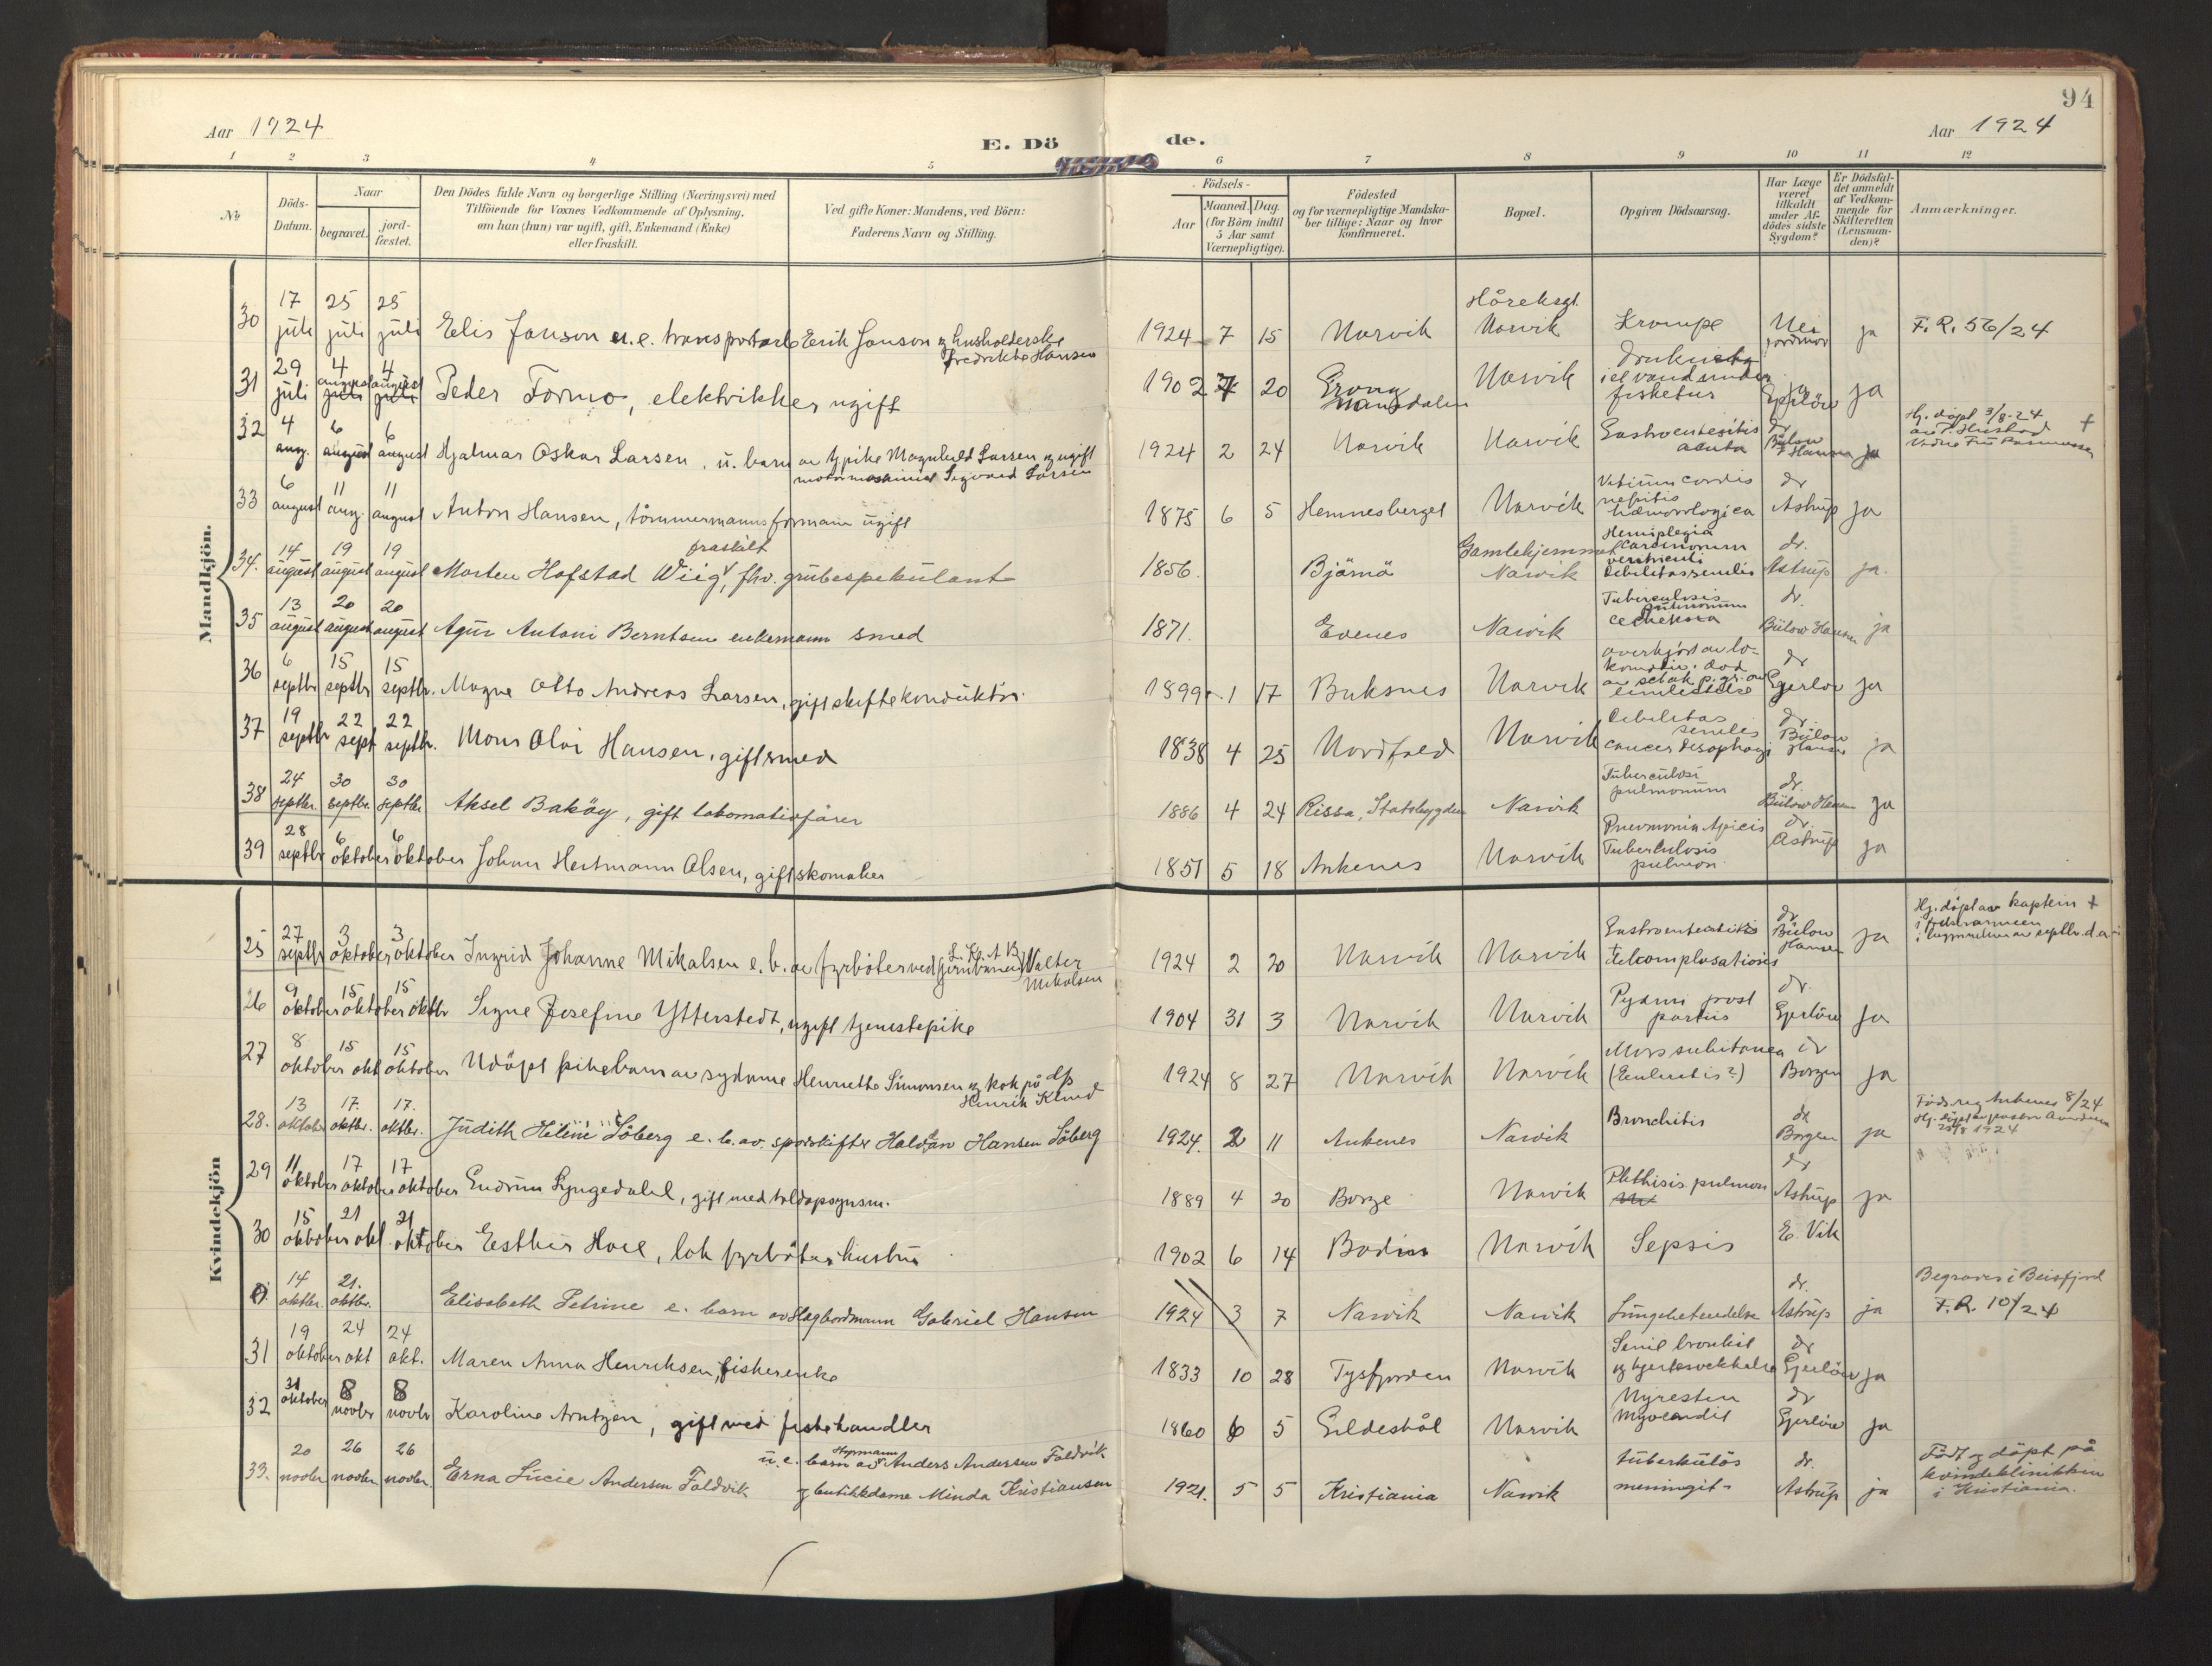 94
Aar 1924
E. Dö
de.
Aar 1924
1 2 3 4 5 6 7 8 9 10 11 12
No
Döds-
Datum.
Naar
begravet.
jord-
fæstet.
Den Dödes fulde Navn og borgerlige Stilling (Næringsvei) med
Tilföiende for Voxnes Vedkommende af Oplysning,
om han (hun) var ugift, gift, Enkemand (Enke)
eller fraskilt.
Ved gifte Koner: Mandens, ved Börn:
Faderens Navn og Stilling.
Födsels-
Aar
Maaned. Dag.
(for Börn indtil
5 Aar samt
Værnepligtige).
Födested
og for værnepligtige Mandska-
ber tillige: Naar og hvor
konfirmeret.
Bopæl.
Opgiven Dödsaarsag.
Har Læge
været
tilkaldt
under Af-
dödes sidste
Sygdom?
Er Dödsfal-
det anmeldt
af Vedkom-
mende for
Skifteretten
(Lensman-
den)?
Anmærkninger.
Mandkjön.
30 17 juli 25 juli 25 juli Elis Janson u.e. transportarb Erik Janson og husholderske
Fredrikke Hansen
1924 7 15 Narvik Håreksgt. Narvik Krampe Nei jordmor ja F. R. 56/24
31 29 juli 4 august juli 4 august juli Peder Formo, elektrikker ugift
1902 7 20 Grong Namsdalen Narvik
i elvand under
fisketur ja Gjerlöw ja
32 4 aug. 6 august 6 august Hjalmar Oskar Larsen, u. barn av pike Magnhild Larsen og ugift
motormaskinist Sigvard Larsen
1924 2 24 Narvik Narvik Gastroenteritis
acuta dr Bülow Hansen ja Hj. döpt 3/8-24 +
av P. Hustad
33 6 august 11 aug. 11 august Anton Hansen, tömmermannsformann ugift
1875 6 5 Hemnesberget Narvik Vitium cordis
nefritis
hæmorologica dr Astrup ja
34. 14 august 19 august 19 august Morten Hofstad Wiig, fraskilt fhv. grubespekulant
1856. Bjärnä Gamlehjemmet Narvik Hemiplegia
carcinonum
ventriculi
Debilitas senilis dr. Astrup ja.
35 13 august 20 august 20 august Agur Antoni Berntsen enkemann smed
1871. Evenes Narvik Tuberculosis
pulmonum
dr. Bülow Hansen ja
36 6 septbr 15 septbr 15 septbr. Magne Otto Andreas Larsen, gift skiftekonduktör.
1899 1 17 Buksnes Narvik overkjört av lo-
dr Gjerlöw ja
37 19 septbr 22 sept 22 septbr. Mons Olai Hansen, gift smed
1838 4 25 Nordfold Narvik Debilitas
seniles
cancer
dr. Bülow Hansen ja
38 24 septbr. 30 septbr. 30 septbr Aksel Baköy, gift lokomotivförer
1886 4 24 Rissa, Statsbygden Narvik Tuberculosi
pulmonum dr. Bülow Hansen ja
39 28 septbr 6 oktober 6 oktober Johan Hertmann Olsen, gift skomaker
1851 5 18 Ankenes Narvik Pneumonia Apicis
Tuberculosis
pulmon dr. Astrup ja
Kvindekjön
25 27 septbr 3 oktober 3 oktober Ingrid Johanne Mikalsen e. b. av fyrböter ved L. K. A B (jernbanen) Walter
Mikalsen
1924 2 20 Narvik Narvik Gastroenteritis
dr Bülow Hansen ja Hj. döpt av kaptein +
i frelsesarmeen
26 9 oktober 15 oktober 15 oktbr Signe Josefine Ytterstedt, ugift tjenestepike
1904 31 3 Narvik Narvik Pyämi post
partus dr. Gjerlöw ja
27 8 oktober 15 okt 15 oktober Udöpt pikebarn av sydame Henriette Simonsen og kok på ds
Henrik
1924 8 27 Narvik Narvik Mors subitanea
dr Borgen ja
28. 13 oktober 17. oktbr. 17. oktbr. Judith Helene Söberg e. b. av. sporskifter Halvdan Hansen Söberg
1924. 2 11 Ankenes Narvik Bronchitis dr Borgen ja Föds.reg Ankenes 8/24
1924
29 11 oktober 17 oktober 17 oktober Gudrun Lyngedahl, gift med toldopsynsm.
1889 4 20 Borge Narvik Phthisis pulmon dr Astrup ja
30 15 oktober 21 okt 21 oktober Esther Hoel, lok fyrböters hustru
1902 6 14 Bodin Narvik Sepsis E. Vik
0. 14 oktbr. 21. oktbr. Elisabeth Petrine e. barn av slagbordmann Gabriel Hansen
1924 3 7 Narvik Narvik Lungebetendelse dr. Astrup ja Begraves i Beisfjord
F. R. 10/24
31 19 oktober 24 okt 24 okt. Maren Anna Henriksen, fiskerenke
1833 10 28 Tysfjorden Narvik Senil bronkit
og hjertesvekkelse dr Gjerlöw ja
32 31 oktober 8 novbr 8 novbr Karoline Arntzen, gift med fiskehandler
1860 6 5 Gildeskål Narvik Nyresten
Myocardit dr Gjerlöw ja
33. 20 novbr 26 novbr 26 novbr Erna Lucie Andersen Foldvik u. e. barn av Anders Andersen Foldvik
og butikkdame Minda Kristiansen
1921. 5 5 Kristiania Narvik tuberkulös
meningit dr. Astrup ja Födt og döpt på
kvindeklinikken
i Kristiania.